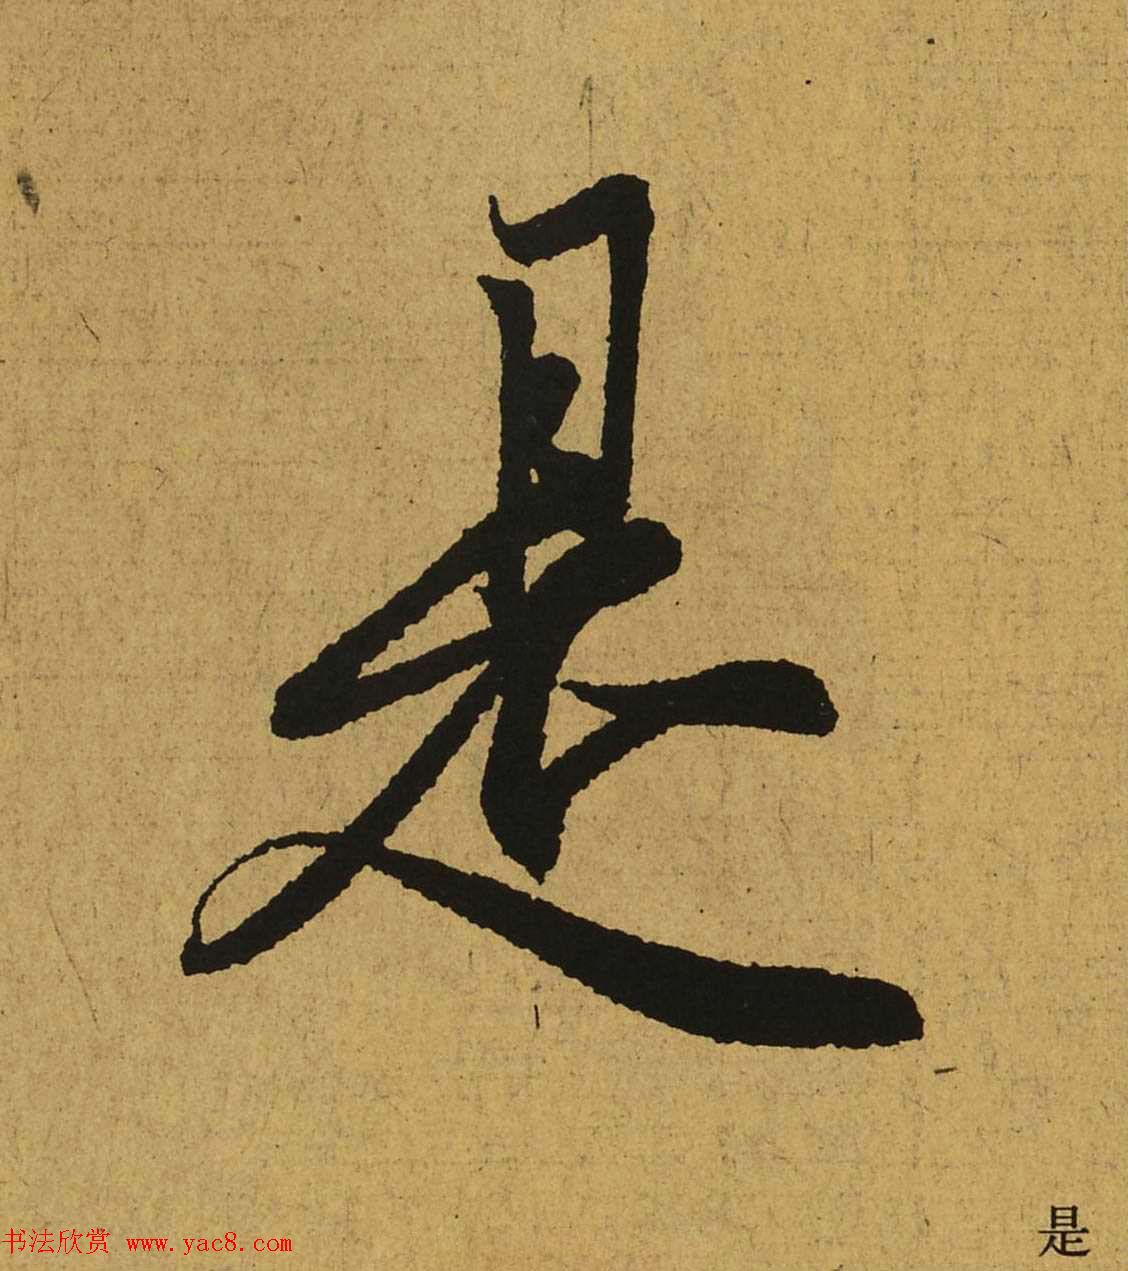 是
书法欣赏 www.yac8.com
是